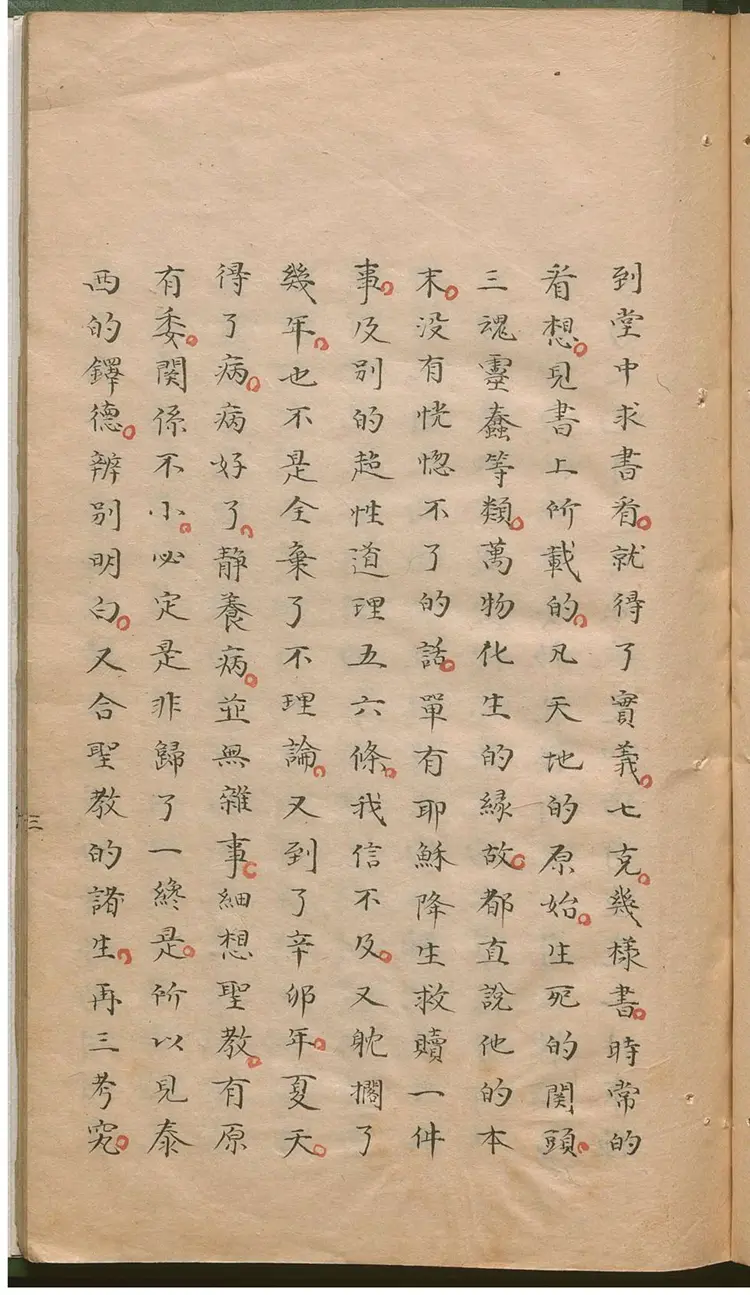 到堂中求書看。就得了實義。七克。幾樣書。時常的
看想。見書上所載的。凡天地的原始。生死的関頭。
三魂靈蠢等類。萬物化生的緣故。都直說他的本
末。没有恍惚不了的話。單有耶穌降生救贖一件
事。及别的超性道理五六條。我信不及。又躭擱了
幾年。也不是全棄了不理論。又到了辛卯年。夏天。
得了病。病好了。静養病。並無雜事。細想聖教。有原
有委。関係不小。必定是非歸了一終是。所以見泰
西的鐸德。辨别明白。又合聖教的諸生。再三考究。
三